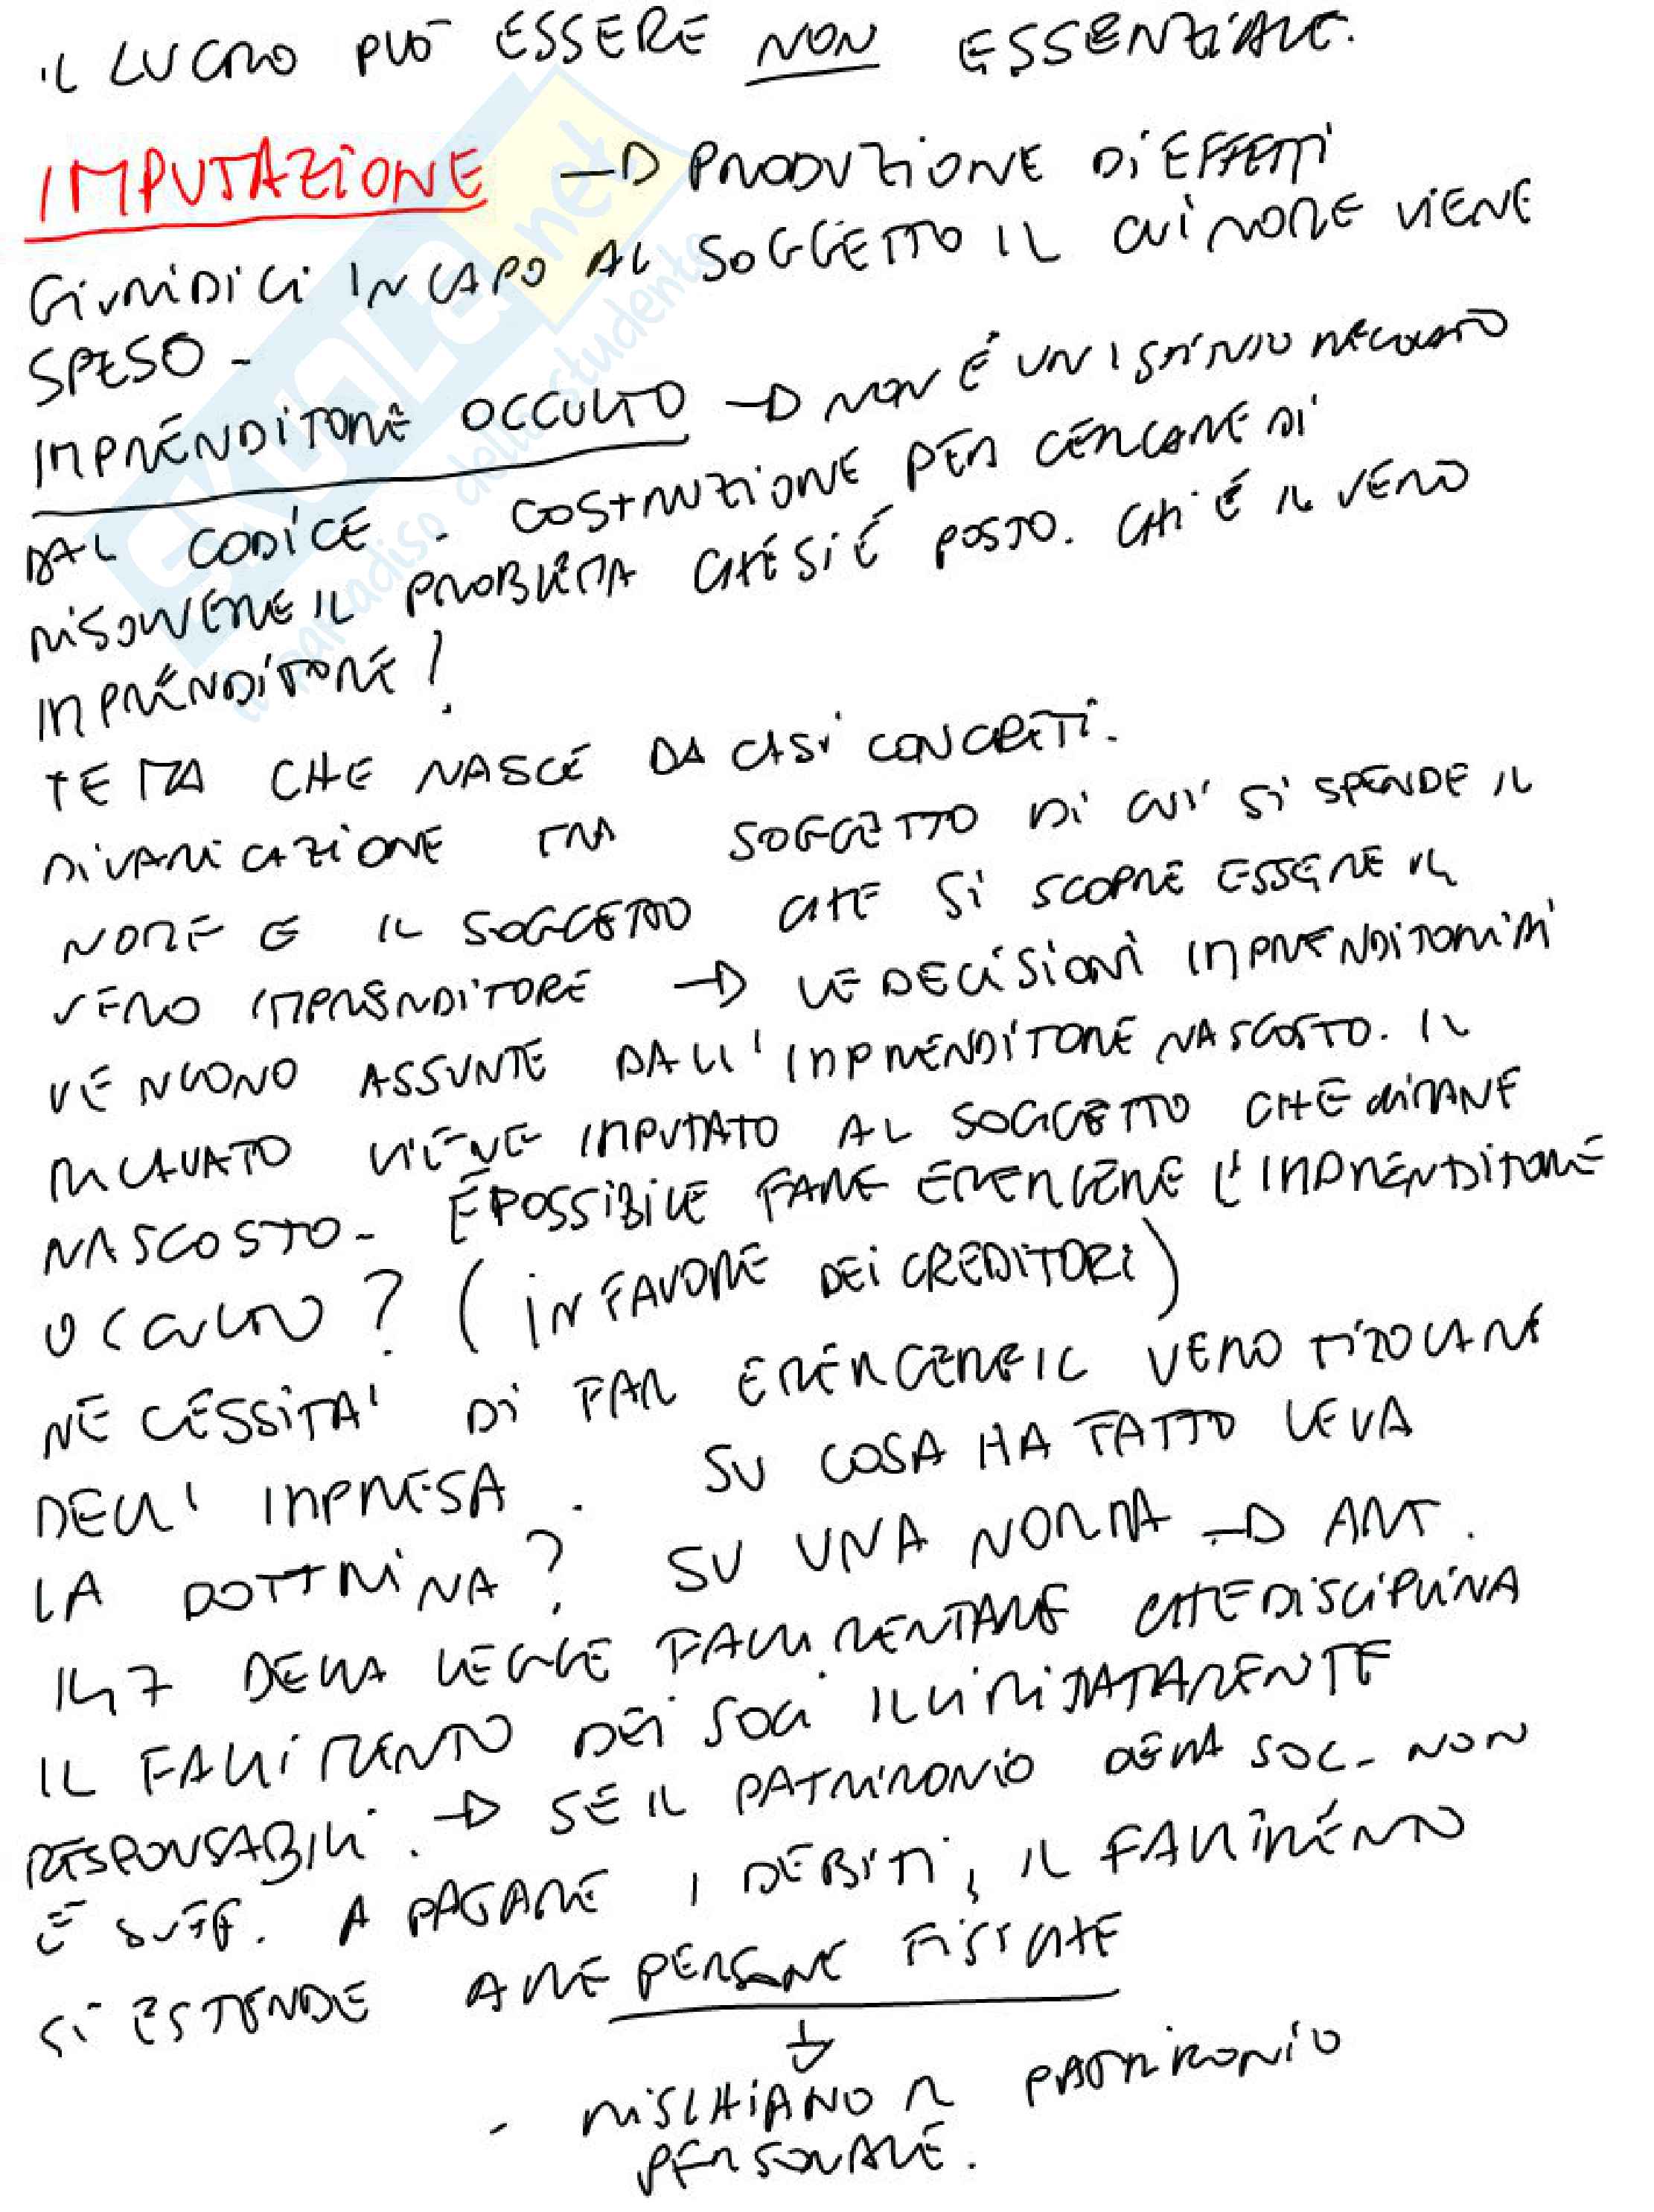 IL LUCRO PUÒ ESSERE NON ESSENZIALE.
IMPUTAZIONE → PRODUZIONE DI EFFETTI
GIURIDICI IN CAPO AL SOGGETTO IL CUI NOME VIENE
SPESO -
IMPRENDITORE OCCULTO → NON È UN ISTITUTO REGOLATO
DAL CODICE - COSTRUZIONE PER CERCARE DI
RISOLVERE IL PROBLEMA CHE SI È POSTO. CHI È IL VERO
IMPRENDITORE!
TEMA CHE NASCE DA CASI CONCRETI.
DIVARICAZIONE TRA SOGGETTO DI CUI SI SPENDE IL
NOME E IL SOGGETTO CHE SI SCOPRE ESSERE IL
VERO IMPRENDITORE → LE DECISIONI IMPRENDITORIALI
VENGONO ASSUNTE DALL'IMPRENDITORE NASCOSTO. IL
RICAVATO VIENE IMPUTATO AL SOGGETTO CHE RIMANE
NASCOSTO - È POSSIBILE FARE EMERGERE L'IMPRENDITORE
OCCULTO? (IN FAVORE DEI CREDITORI)
NECESSITA' DI FAR EMERGERE IL VERO TITOLARE
DELL'IMPRESA. SU COSA HA FATTO LEVA
LA DOTTRINA? SU UNA NORMA → ART.
147 DELLA LEGGE FALLIMENTARE CHE DISCIPLINA
IL FALLIMENTO DEI SOCI ILLIMITATAMENTE
RESPONSABILI. → SE IL PATRIMONIO DELLA SOC- NON
È SUFF. A PAGARE I DEBITI, IL FALLIMENTO
SI ESTENDE ALLE PERSONE FISICHE
↓
- RISCHIANO IL PATRIMONIO
PERSONALE.
SKUOLA.net
il paradiso dello studente